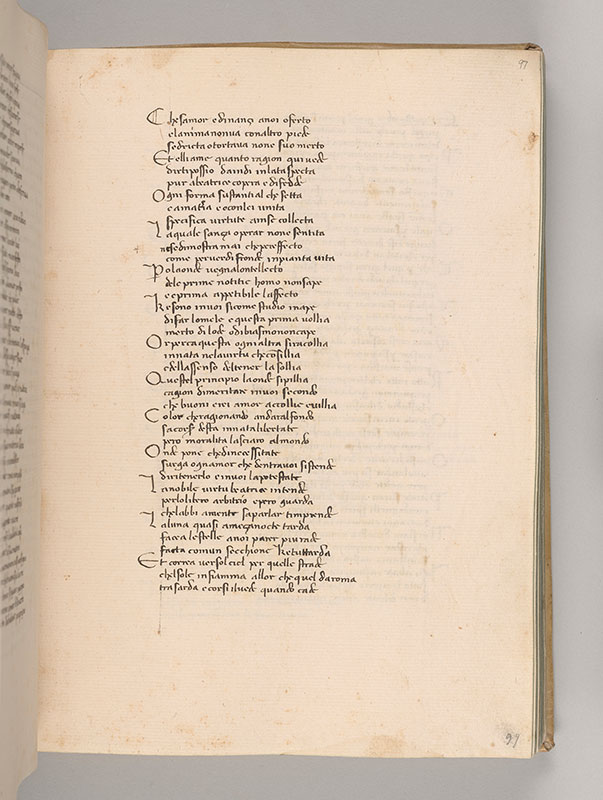 97
Chesamor edinançi anoi oferto
elanima nonva conaltro piede
sedricta otortava none suo merto
Et elliame quanto ragion qui vede
dirtipossio daindi inlataspecta
pur abeatrice copera e difede
Ogni forma sustantial che setta
e amatia e conlei unita
specifica virtute ainse collecta
Laquale sança operar none sentita
nesedimostra mai cheper effecto
come perverdi fronde inpianta vita
Polaonde vegnalontellecto
dele prime notitie homo nonsape
e eprima appetibile laffecto
Ke sono invoi sicome studio inape
difar lomele e questa prima vollia
merto di lode odibiasmononcape
Or perca questa ogni altra siracollia
innata nelavirtu checonsillia
edellassenso de tener lasollia
Questel principio laonde sipillia
cagion dimeritare invoi secondo
che buoni erei amor accollie e villia
Color cheragionando andaralfondo
sacorser desta innatalibertate
pero moralita lasciaro almondo
Onde pone chedinecessitate
surga ognamor che dentravoi sistende
diritenerlo e invoi lapotestate
Lanobile virtu beatrice intende
perlolibero arbitrio epero guarda
chelabbi amente saparlar timprende
Laluna quasi ameçanocte tarda
facea lestelle anoi parer piu rade
facta comun secchione Ketuttarda
Et correa versol ciel per quelle strade
chelsole infiamma allor chequel daroma
trasarda ecorsi ilvede quando cade
97